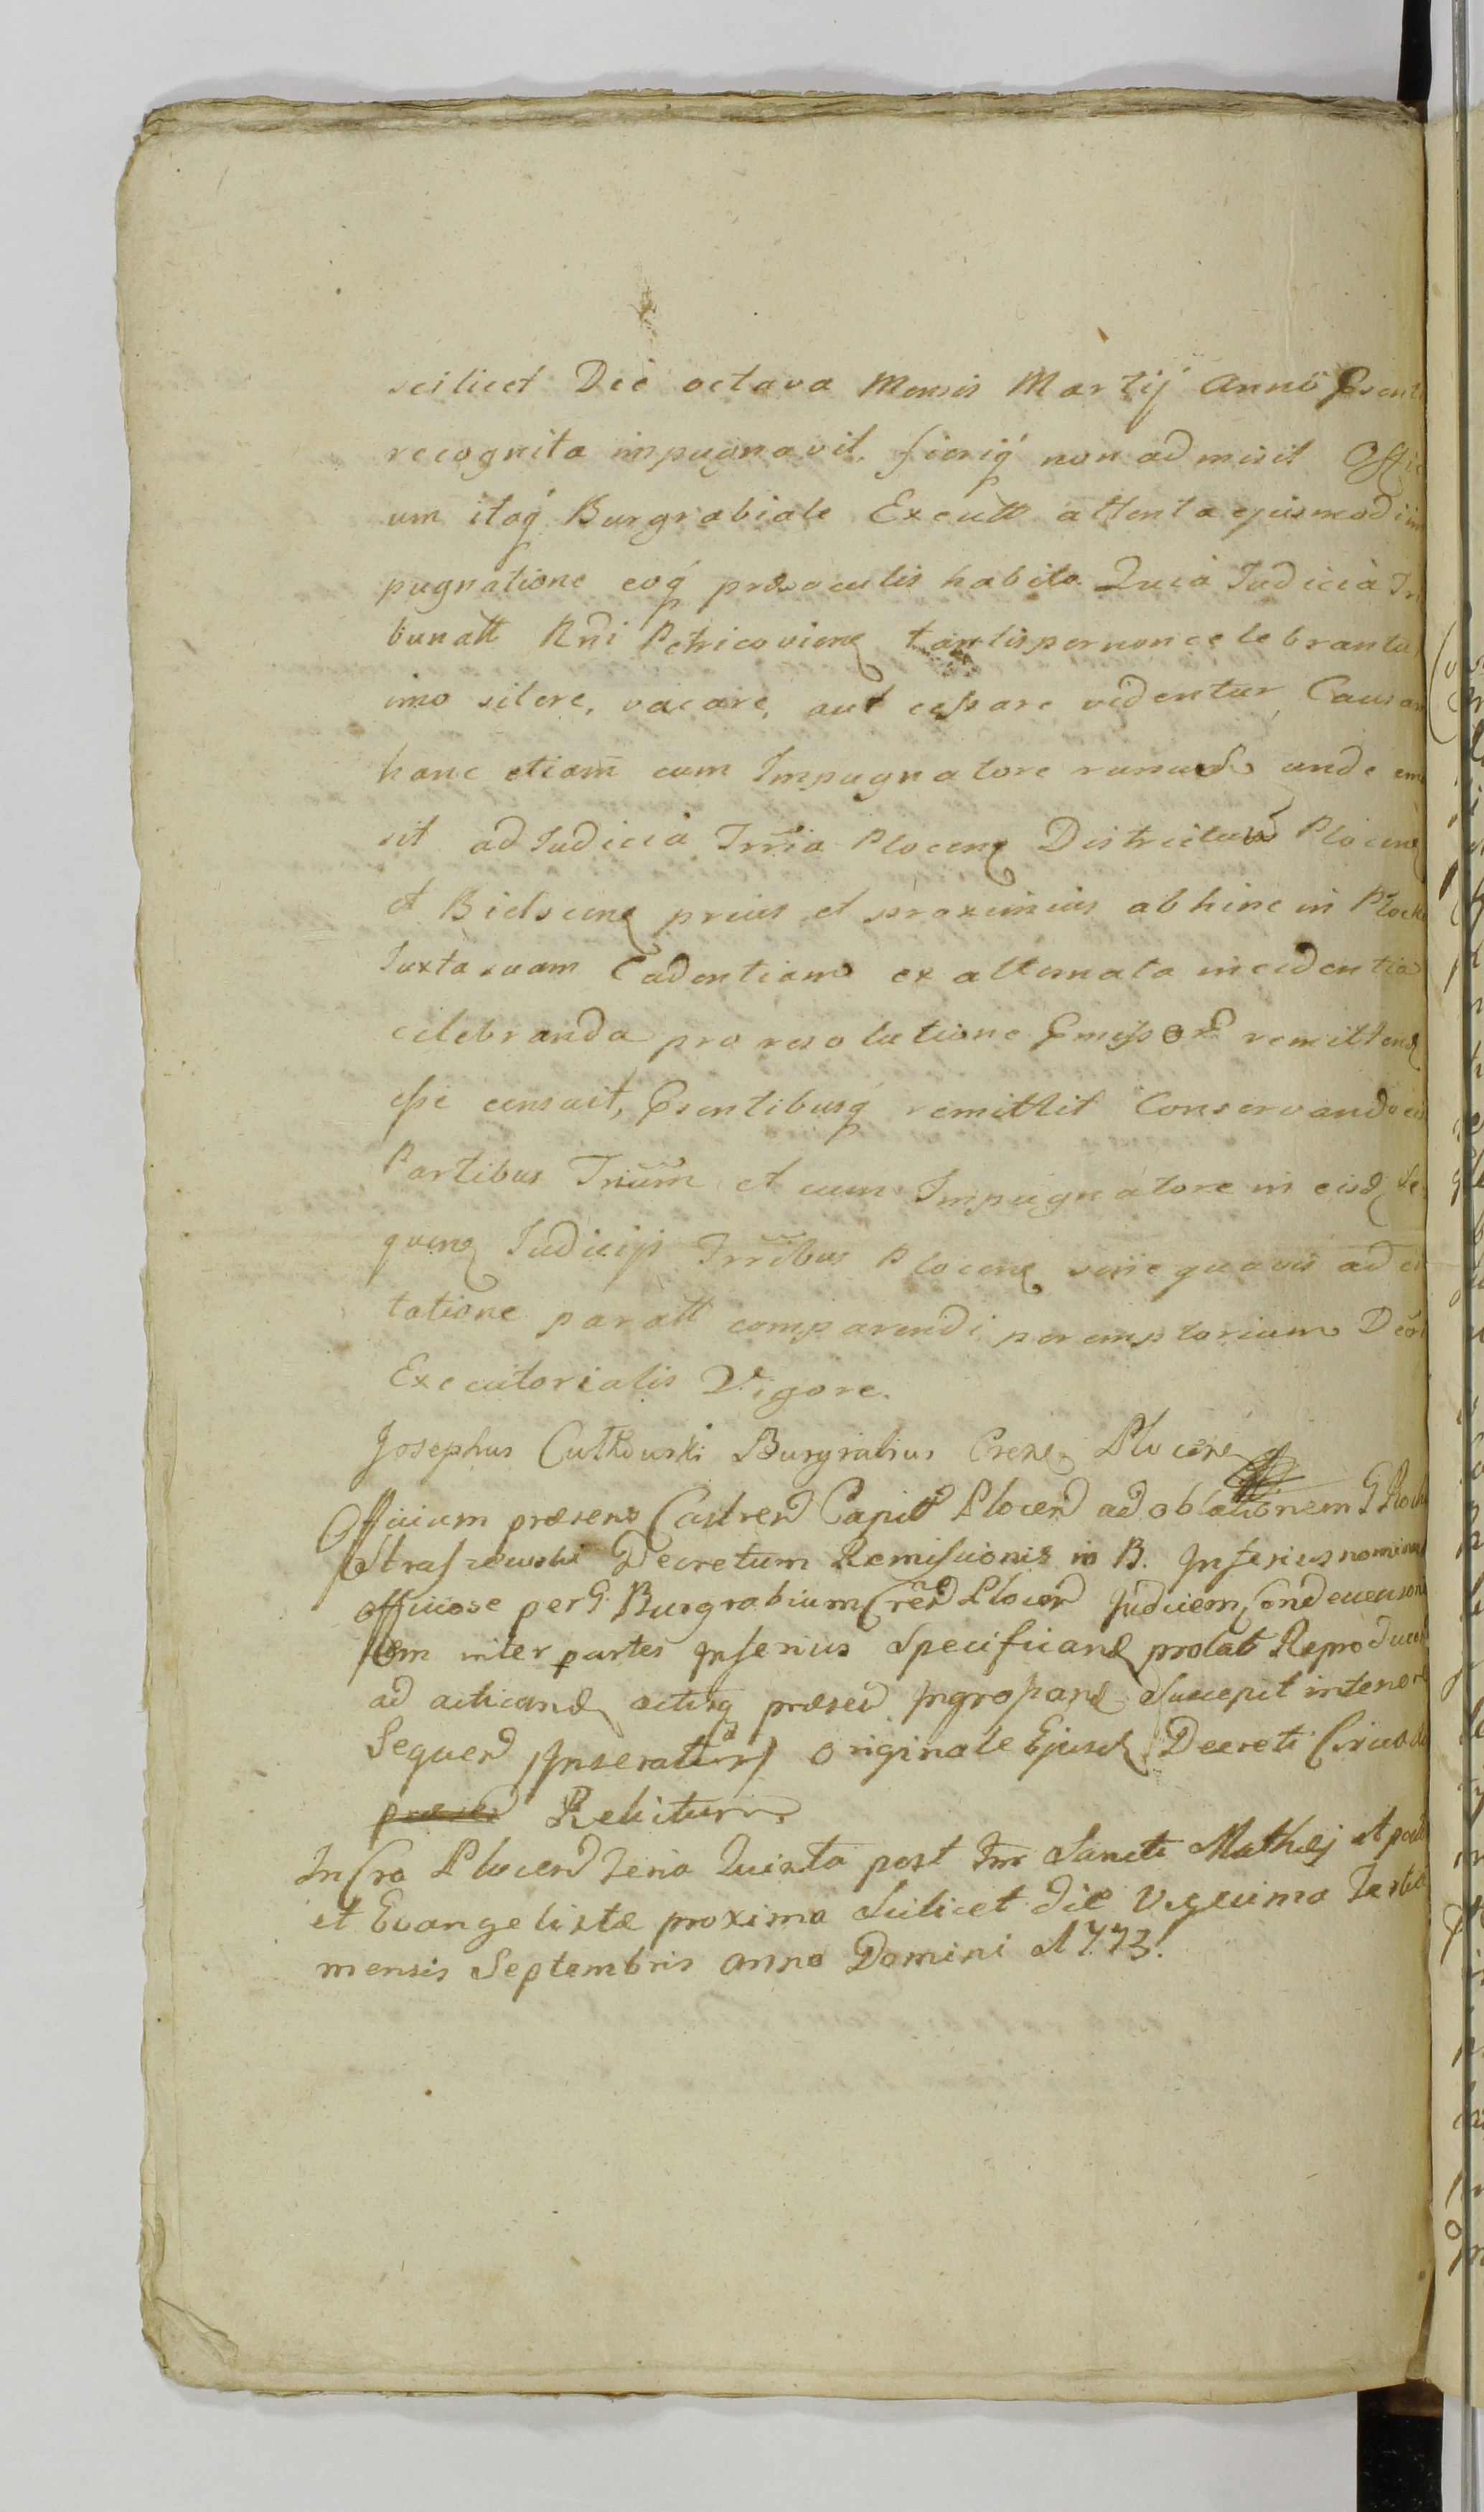 scilicet Die octava Mensis Martij Anno Psenti
recognita impugnavit, fieriq́ non admisit Offi
um itaq́ Burgrabiale Exeutt attenta ejusmodi im
pugnatione eoq́ præoculis habito Quia Judicia Tri
bunatt Rni Petricovien tantisper non celebrantu
imo silere, vacare, aut cessare videntur, Causam
hanc etiam cum Impugnatore unde em
sit ad Judicia Trria Plocen Districtuu Plocen
et Bielscen prius et proximius abhinc in Plock
Juxta suam Cadentiam ex alternata incidentia
celebranda pro resolutione Pmissor remittend
esse censuit, Psentibusq́ remittit Conservando eis
Partibus Trium et cum Impugnatore in eisd Se
quen Judicijs Trribus Plocen sine quavis ad ci
tatione paratt comparendi peremptorium Decri
Executorialis Vigore.
Josephus Cutkowski Burgrabius Crens Plocens
Officium præsens Castren Capit Plocen ad oblationem G Roch
Straszewski Decretum Remissionis in B. Inferius nominan
officiose per G. Burgrabium Cren Plocen Judicem Condecenson
tem inter partes Inferius Specificand prolat Reproducen
ad acticand actisq præsen Ingrossand Suscepit in tenore
Sequen Inseratur Originale Ejusd Decreti Circa
præsen Relicturn
In Cro Plocen Feria Quinta post Fm Sancti Mathej Apos
et Evangelistæ proxima Scilicet die Vigesima Tertia
mensis Septembris anno Domini 1773.